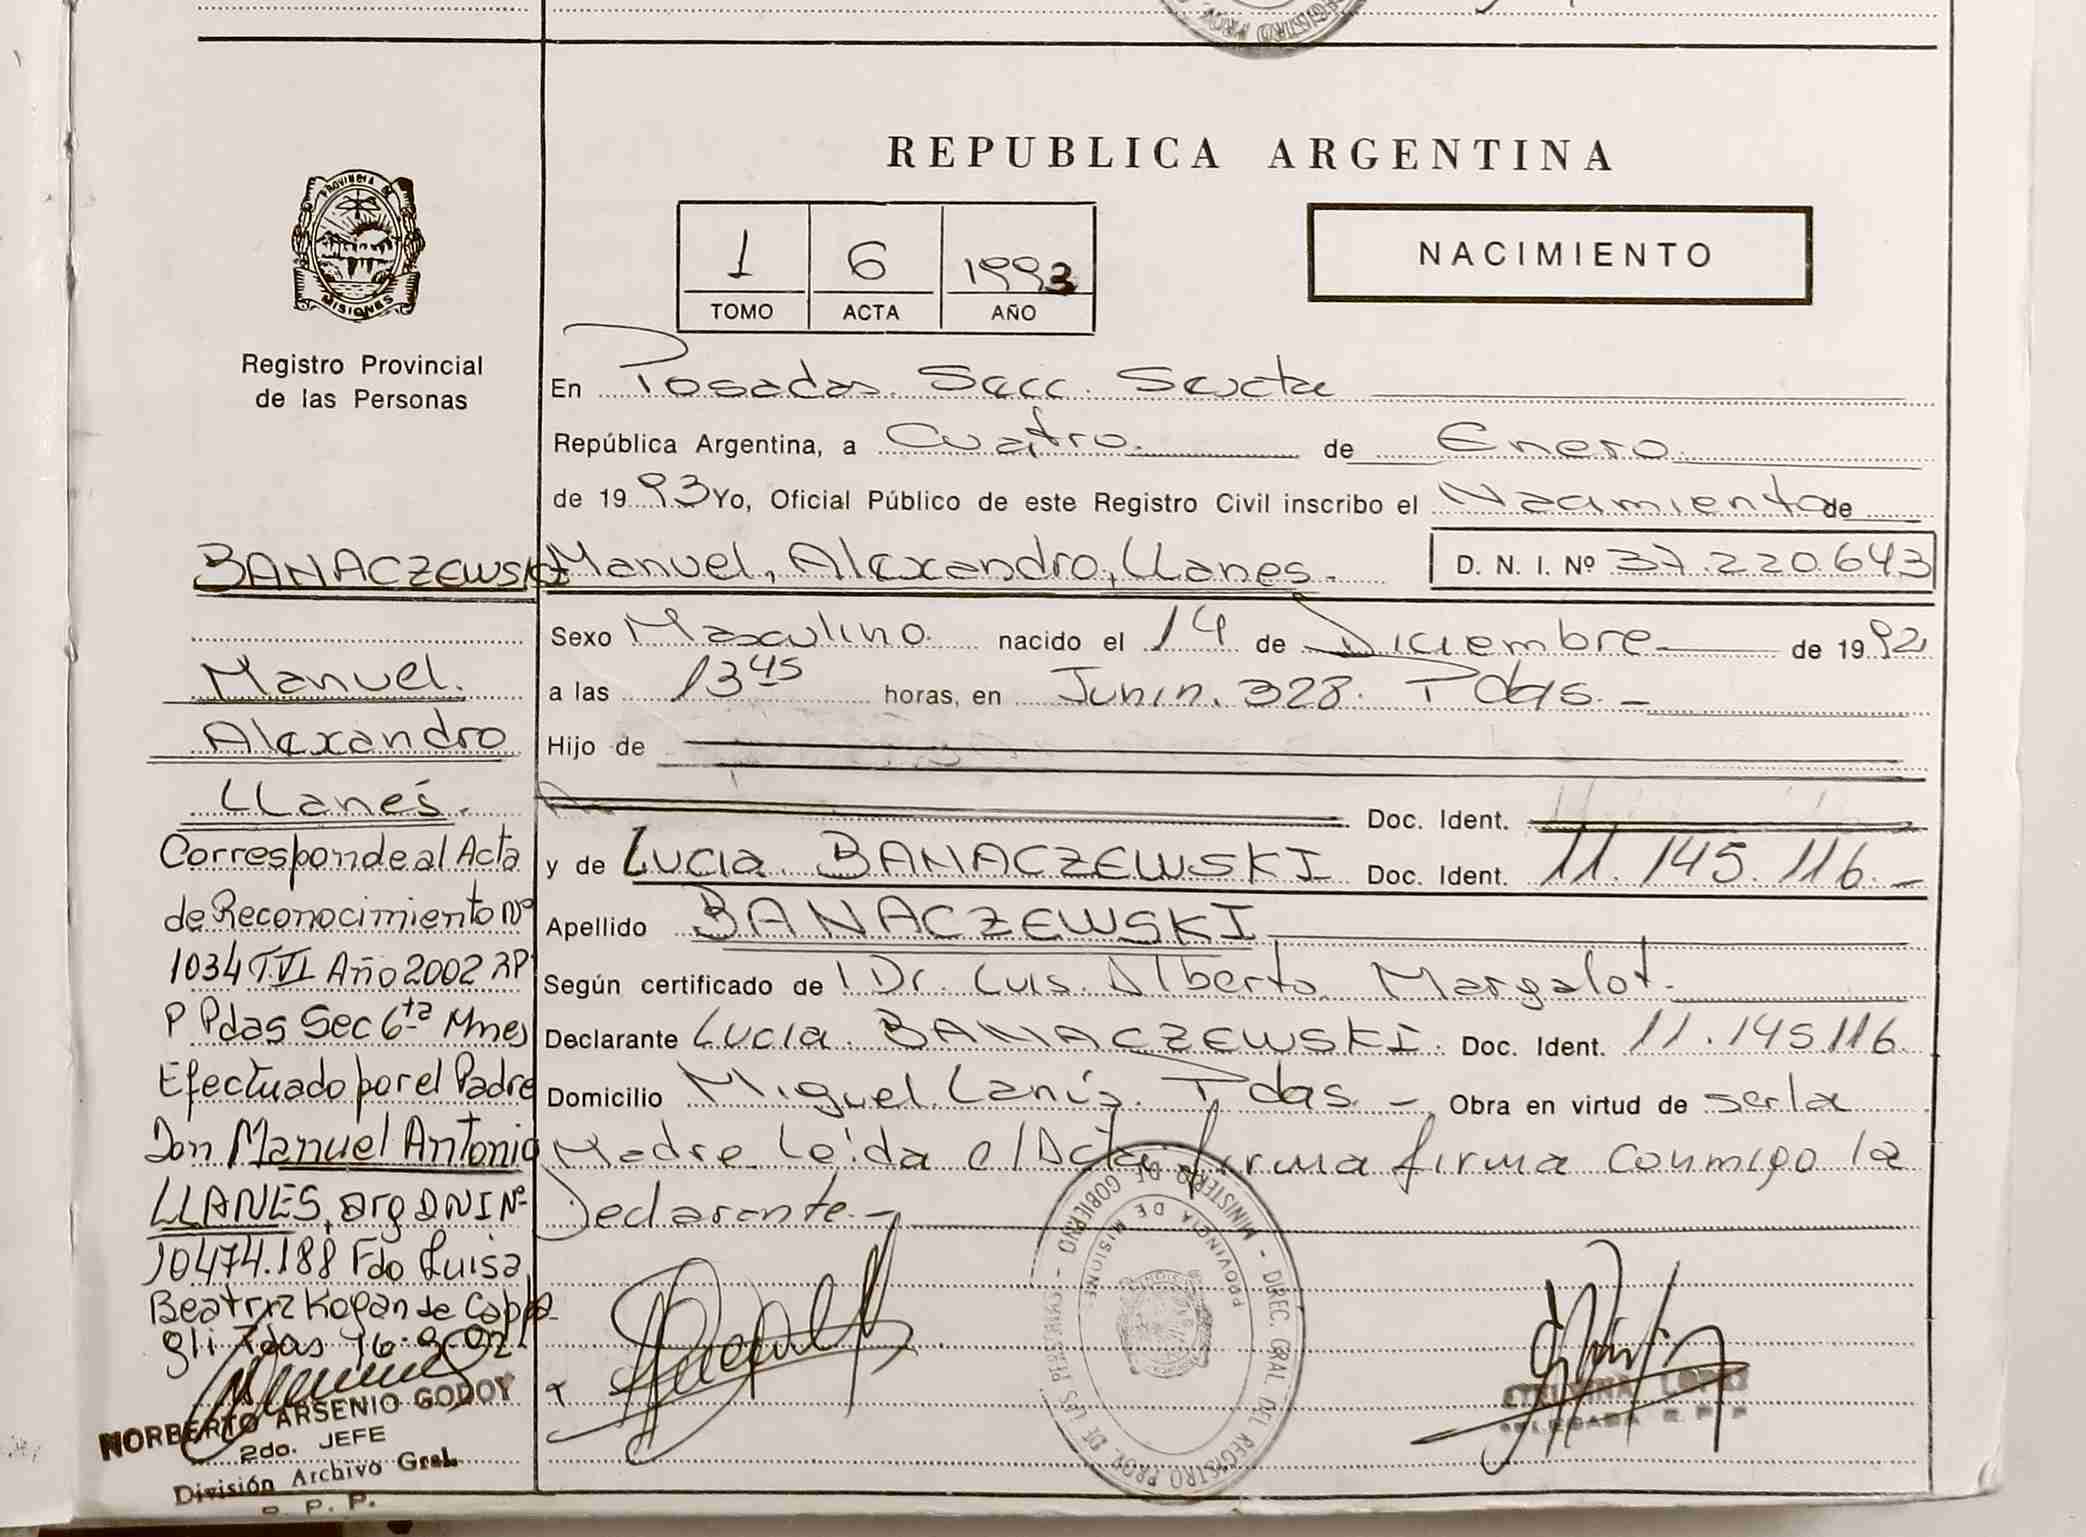 REPUBLICA ARGENTINA
PROVINCIA DE
MISIONES
Registro Provincial
de las Personas
1 6 1993
TOMO ACTA AÑO
NACIMIENTO
En Posadas Secc. Sexta
República Argentina, a Cuatro de Enero
de 1993 Yo, Oficial Público de este Registro Civil inscribo el Nacimiento de
BANACZEWSKI Manuel, Alexandro, Llanes. D. N. I. Nº 37.220.643
Sexo Masculino nacido el 14 de Diciembre de 1992
a las 13 45 horas, en Junin. 328. Pdas. -
Hijo de
Doc. Ident.
y de Lucia BANACZEWSKI Doc. Ident. 11.145.116.-
Apellido BANACZEWSKI
Según certificado de Dr. Luis Alberto Margalot.
Declarante Lucia BANACZEWSKI. Doc. Ident. 11.145.116.
Domicilio Miguel Lanús. Pdas. - Obra en virtud de ser la
Madre Leida el Acta firma firma conmigo la
Declarante.-
Manuel.
Alexandro
LLanes.
Corresponde al Acta
de Reconocimiento Nº
1034 T.VI Año 2002 RP
P Pdas Sec 6ta Mnes
Efectuado por el Padre
Don Manuel Antonio
LLANES, arg DNI Nº
10474.188 Fdo Luisa
Beatriz Kogan de Cappa
gli Pdas 16.9.02
NORBERTO ARSENIO GODOY
2do. JEFE
División Archivo Gral.
R. P. P.
MINISTERIO DE GOBIERNO - DIREC. GRAL. DEL REGISTRO PROV. DE LAS PERSONAS
PROVINCIA DE MISIONES
LOPEZ
DELEGADA R. P. P.